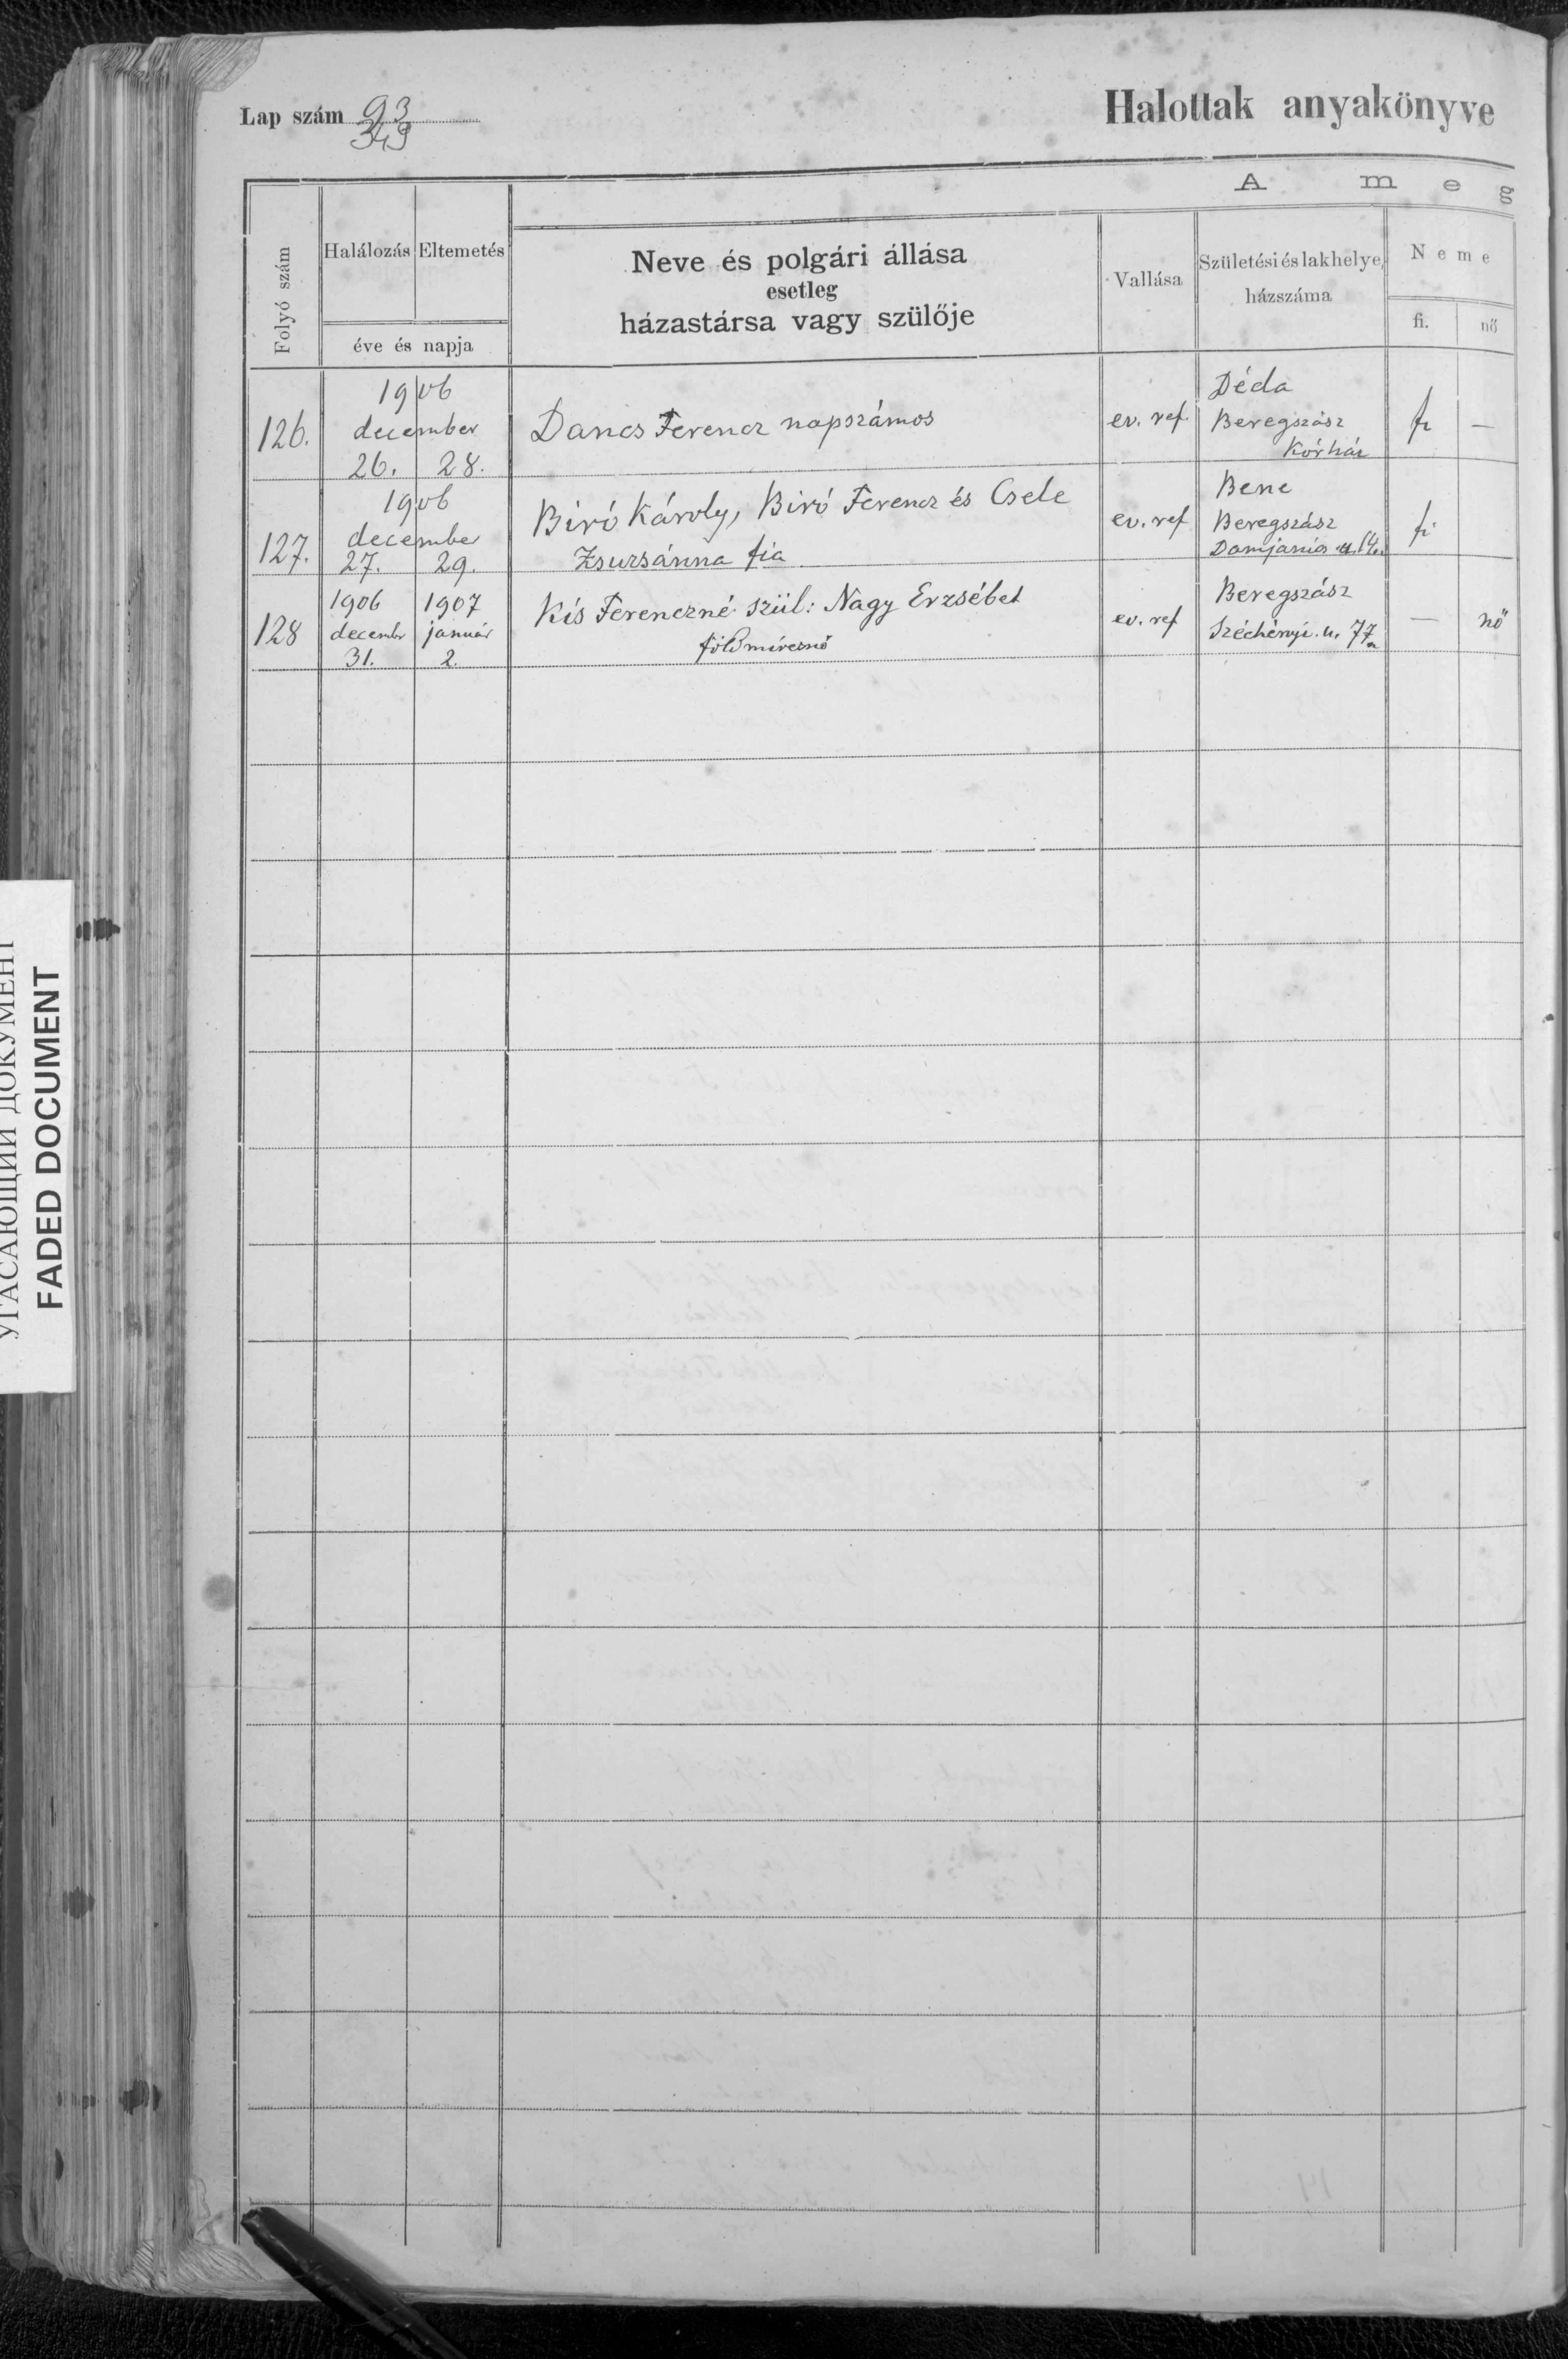 Lap szám 93
343
Halottak anyakönyve
A m e g
Folyó szám
Halálozás
Eltemetés
éve és napja
Neve és polgári állása
esetleg
házastársa vagy szülője
Vallása
Születési és lakhelye,
házszáma
Neme
fi.
nő
126.
1906
december
26. 28.
Dancs Ferencz napszámos
ev. ref.
Déda
Beregszász
Kórház
fi —
127.
1906
december
27. 29.
Biró Károly, Biró Ferencz és Csele
Zsuzsánna fia
ev. ref
Bene
Beregszász
Damjanics u. 14.
fi
128
1906 1907
decembr január
31. 2.
Kis Ferenczné szül: Nagy Erzsébet
földmívesnő
ev. ref
Beregszász
Széchényi u. 77
— nő
УГАСАЮЩИЙ ДОКУМЕНТ
FADED DOCUMENT